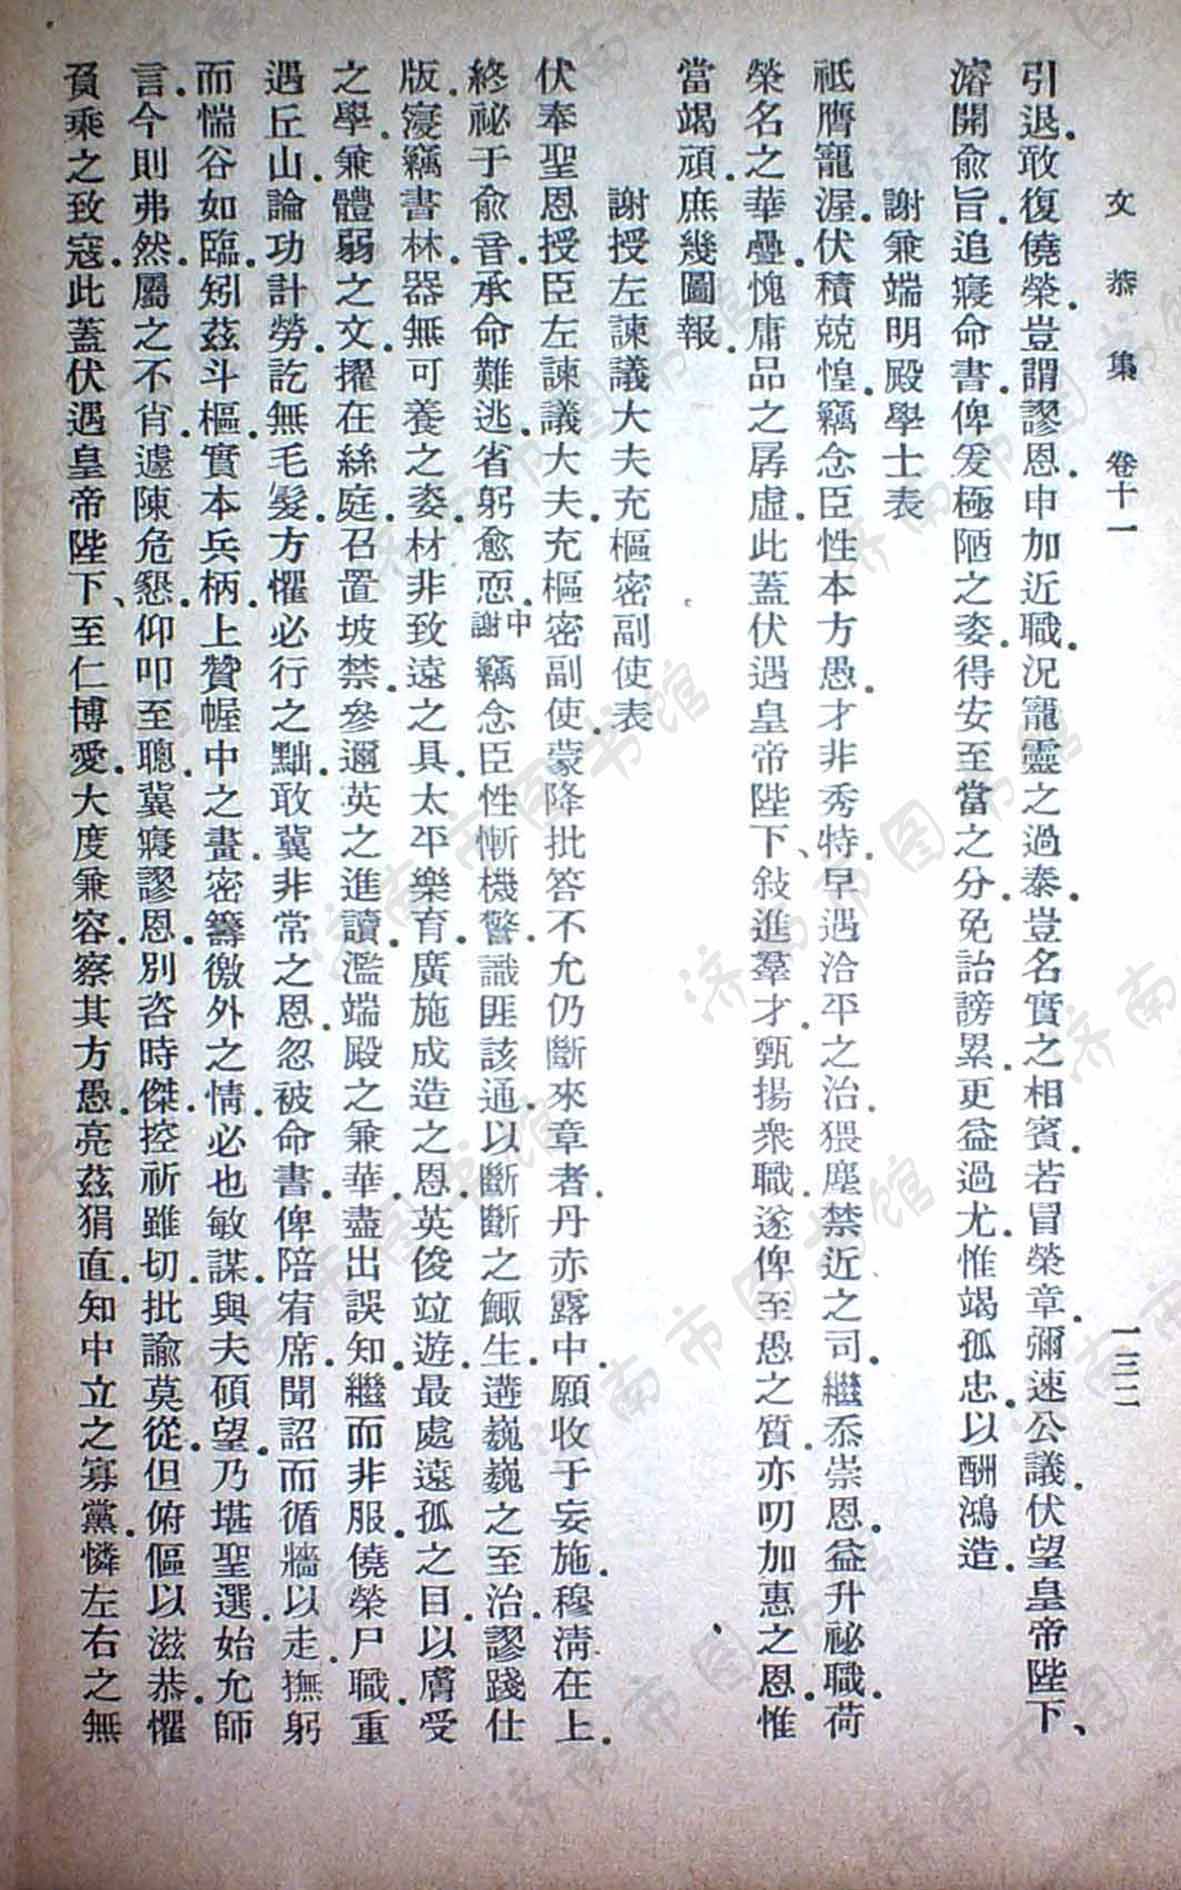 文恭集 卷十一 一三二
引退.敢復僥榮.豈謂謬恩.申加近職.況寵靈之過泰.豈名實之相賓.若冒榮章.彌速公議.伏望皇帝陛下、
濬開俞旨.追寢命書.俾爰極陋之姿.得安至當之分.免詒謗累.更益過尤.惟竭孤忠.以酬鴻造.
謝兼端明殿學士表
祇膺寵渥.伏積兢惶.竊念臣性本方愚.才非秀特.早遇洽平之治.猥塵禁近之司.繼忝崇恩.益升祕職.荷
榮名之華疊.愧庸品之孱虛.此蓋伏遇皇帝陛下、敍進羣才.甄揚衆職.遂俾至愚之質.亦叨加惠之恩.惟
當竭頑.庶幾圖報.
謝授左諫議大夫充樞密副使表
伏奉聖恩.授臣左諫議大夫.充樞密副使.蒙降批答不允仍斷來章者.丹赤露中.願收于妄施.穆清在上.
終祕于俞音.承命難逃.省躬愈恧.中謝 竊念臣性慚機警.識匪該通.以斷斷之鯫生.遘巍巍之至治.謬踐仕
版.寖竊書林.器無可養之姿.材非致遠之具.太平樂育.廣施成造之恩.英俊竝遊.最處遠孤之目.以膚受
之學.兼體弱之文.擢在絲庭.召置坡禁.參邇英之進讀.濫端殿之兼華.盡出誤知.繼而非服.僥榮尸職.重
遇丘山.論功計勞.訖無毛髮.方懼必行之黜.敢冀非常之恩.忽被命書.俾陪宥席.聞詔而循牆以走.撫躬
而惴谷如臨.矧茲斗樞.實本兵柄.上贊幄中之畫.密籌徼外之情.必也敏謀.與夫碩望.乃堪聖選.始允師
言.今則弗然.屬之不肖.遽陳危懇.仰叩至聰.冀寢謬恩.別咨時傑.控祈雖切.批諭莫從.但俯傴以滋恭.懼
負乘之致寇.此蓋伏遇皇帝陛下、至仁博愛.大度兼容.察其方愚.亮茲狷直.知中立之寡黨.憐左右之無